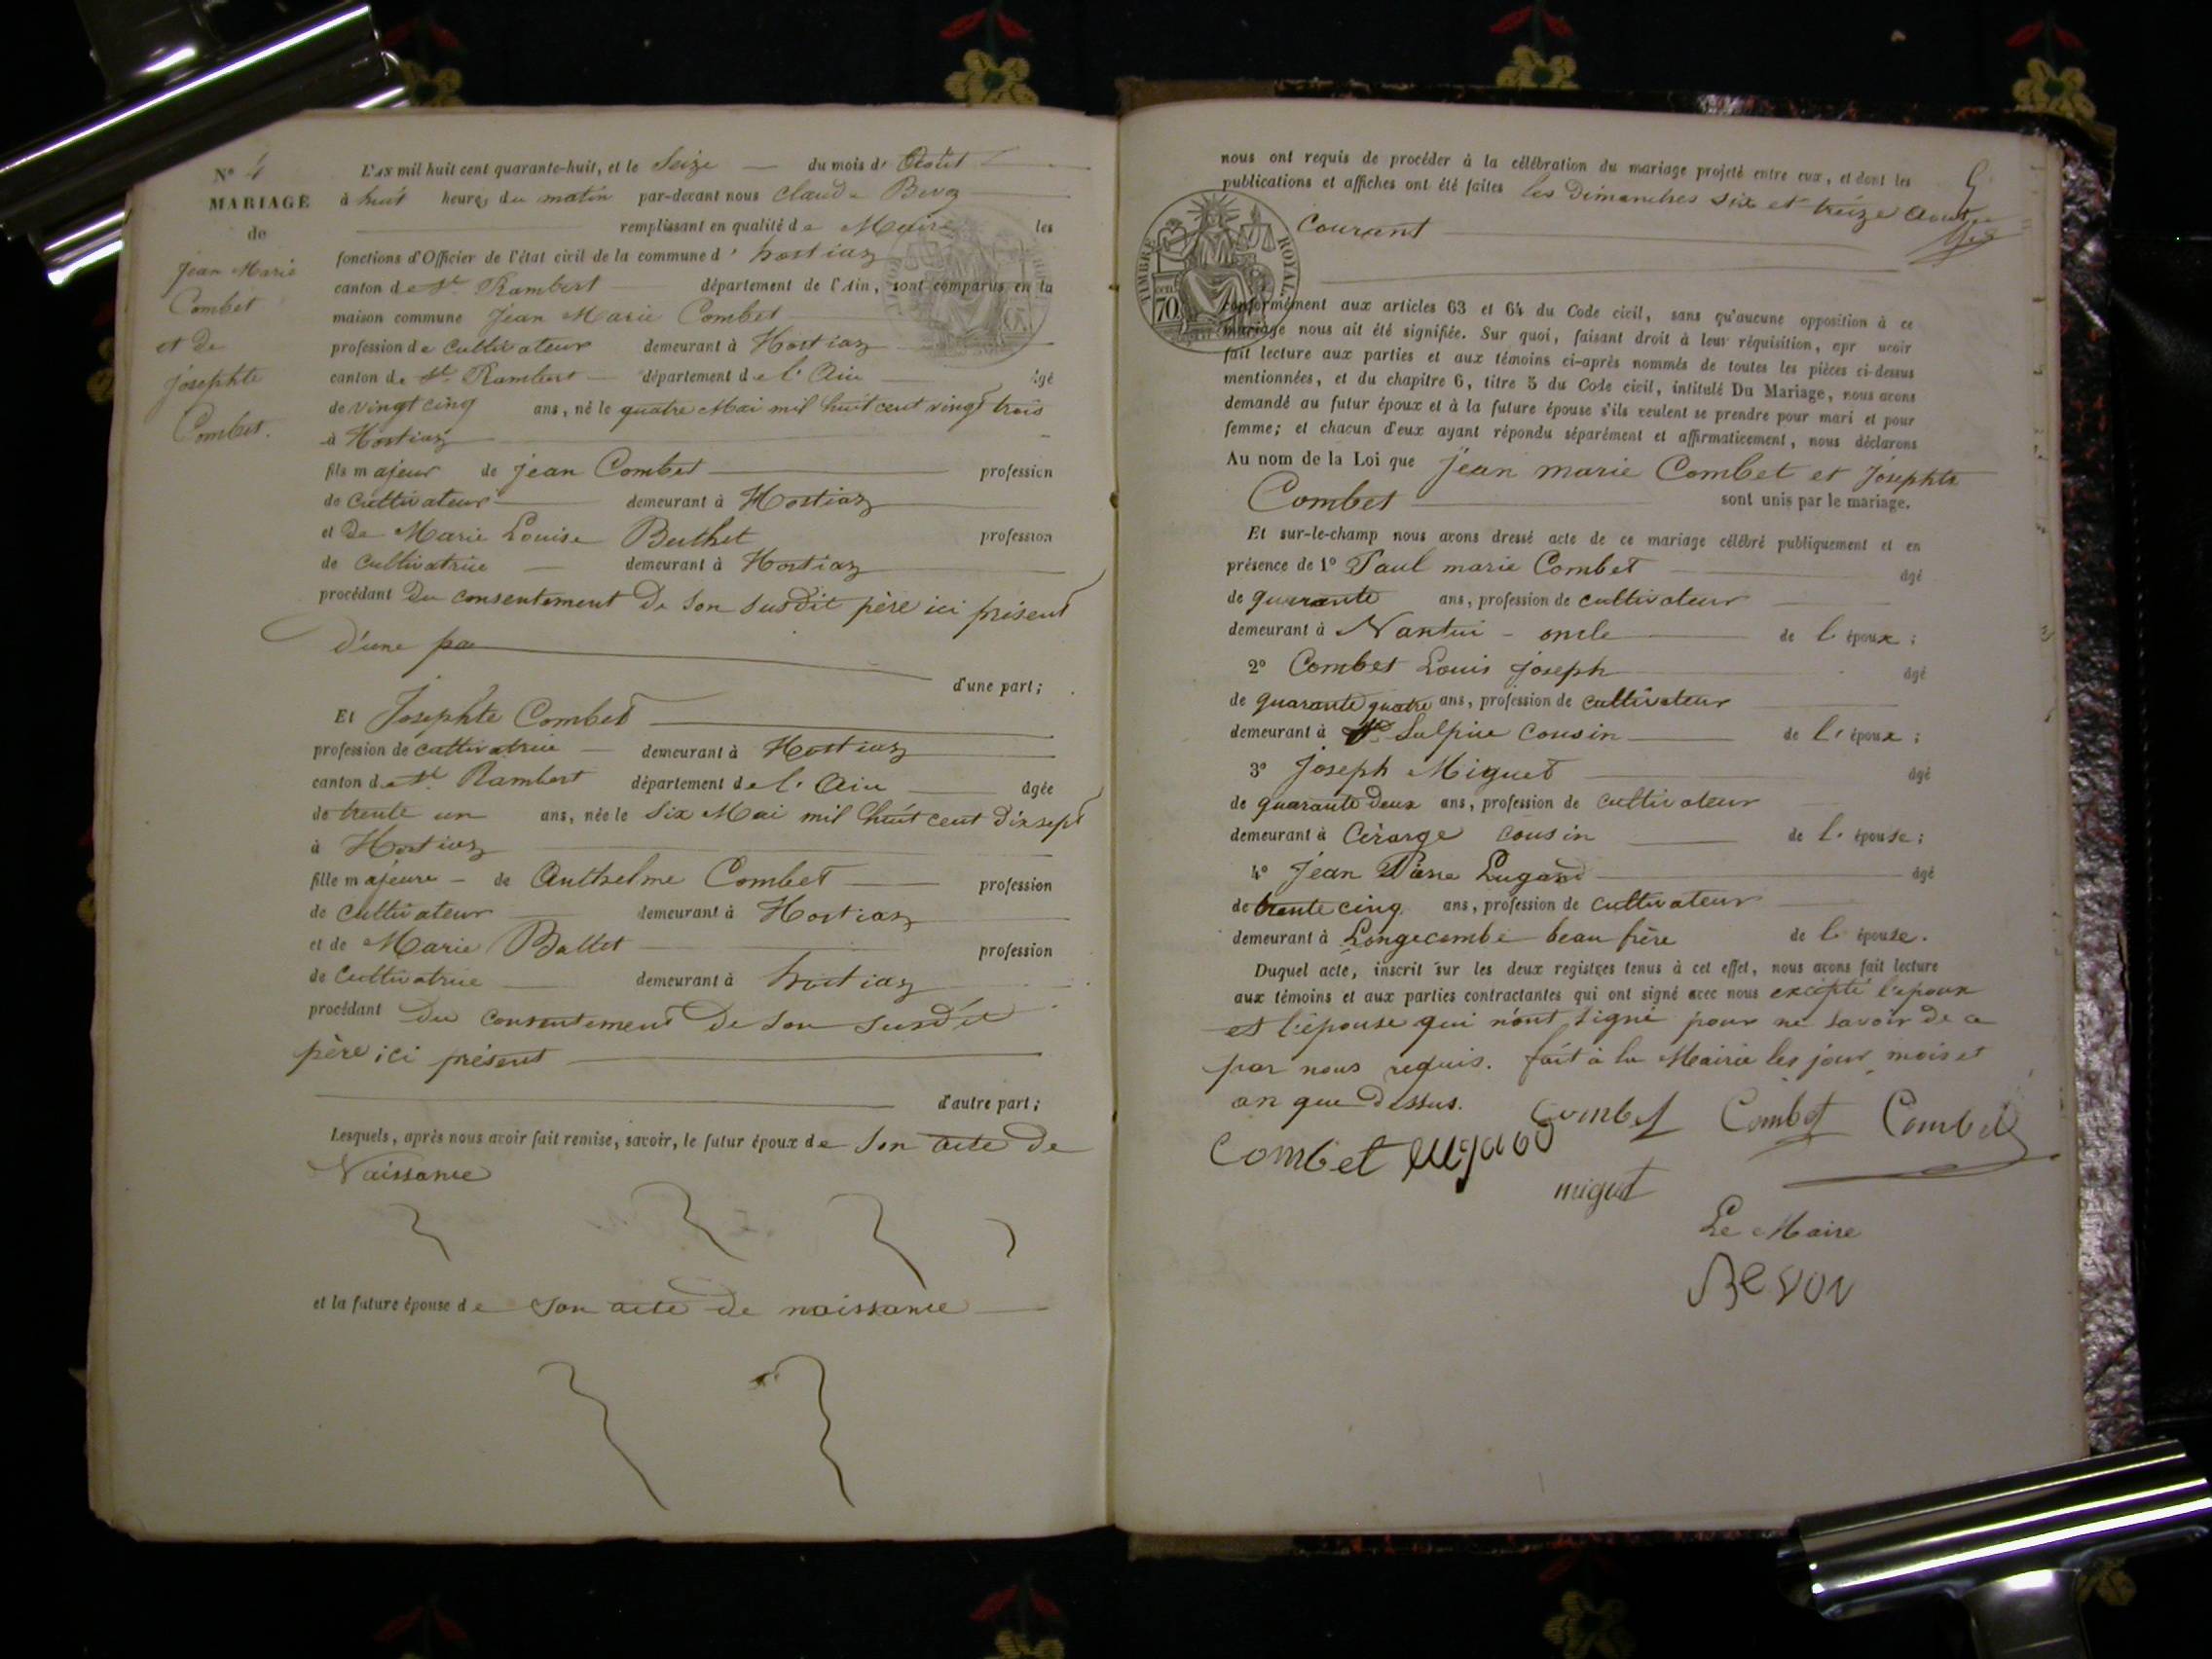 N° 4
MARIAGE
de
Jean Marie
Combet
et de
Josephte
Combet.
L'AN mil huit cent quarante-huit, et le Seize du mois d' Août
à huit heures du matin par-devant nous Claude
remplissant en qualité de Maire les
fonctions d'Officier de l'état civil de la commune d' hostiaz
canton de St. Rambert département de l'Ain, sont comparus en la
maison commune Jean Marie Combet
profession de Cultivateur demeurant à Hostiaz
canton de St. Rambert département de l'Ain âgé
de vingt cinq ans, né le quatre Mai mil huit cent vingt trois
à Hostiaz
fils majeur de jean Combet profession
de Cultivateur demeurant à Hostiaz
et de Marie Louise Berthet profession
de Cultivatrice demeurant à Hostiaz
procédant Du consentement De Son susdit père ici présent
D'une pa
d'une part;
Et Josephte Combet
profession de cultivatrice demeurant à Hostiaz
canton de St. Rambert département de l'Ain âgée
de trente un ans, née le Six Mai mil huit cent Dix sept
à Hostiaz
fille majeure de Anthelme Combet profession
de Cultivateur demeurant à Hostiaz
et de Marie Ballet profession
de Cultivatrice demeurant à hostiaz
procédant Du consentement De Son Susdit
père ici présent
d'autre part;
Lesquels, après nous avoir fait remise, savoir, le futur époux de Son acte De
Naissance
et la future épouse de Son acte de naissance
nous ont requis de procéder à la célébration du mariage projeté entre eux, et dont les
publications et affiches ont été faites les Dimanches Six et treize Aout
Courant
TIMBRE ROYAL
70
conformément aux articles 63 et 64 du Code civil, sans qu'aucune opposition à ce
mariage nous ait été signifiée. Sur quoi, faisant droit à leur réquisition, apr avoir
fait lecture aux parties et aux témoins ci-après nommés de toutes les pièces ci-dessus
mentionnées, et du chapitre 6, titre 5 du Code civil, intitulé Du Mariage, nous avons
demandé au futur époux et à la future épouse s'ils veulent se prendre pour mari et pour
femme; et chacun d'eux ayant répondu séparément et affirmativement, nous déclarons
Au nom de la Loi que Jean marie Combet et Josephte
Combet sont unis par le mariage.
Et sur-le-champ nous avons dressé acte de ce mariage célébré publiquement et en
présence de 1° Paul marie Combet âgé
de quarante ans, profession de cultivateur
demeurant à Nantui oncle de l'époux;
2° Combet Louis joseph âgé
de quarante quatre ans, profession de cultivateur
demeurant à St. Sulpice Cousin de l'époux;
3° Joseph Miguet âgé
de quarante Deux ans, profession de Cultivateur
demeurant à cousin de l'épouse;
4° Jean Pierre Lugand âgé
de trente cinq ans, profession de Cultivateur
demeurant à Longecombe beau frère de l'épouse.
Duquel acte, inscrit sur les deux registres tenus à cet effet, nous avons fait lecture
aux témoins et aux parties contractantes qui ont signé avec nous excepté l'époux
et l'épouse qui n'ont signé pour ne savoir de ce
par nous requis. fait à la Mairie les jour, mois et
an que Dessus. Combet Combet Combet
Combet lugand
miguet
Le Maire